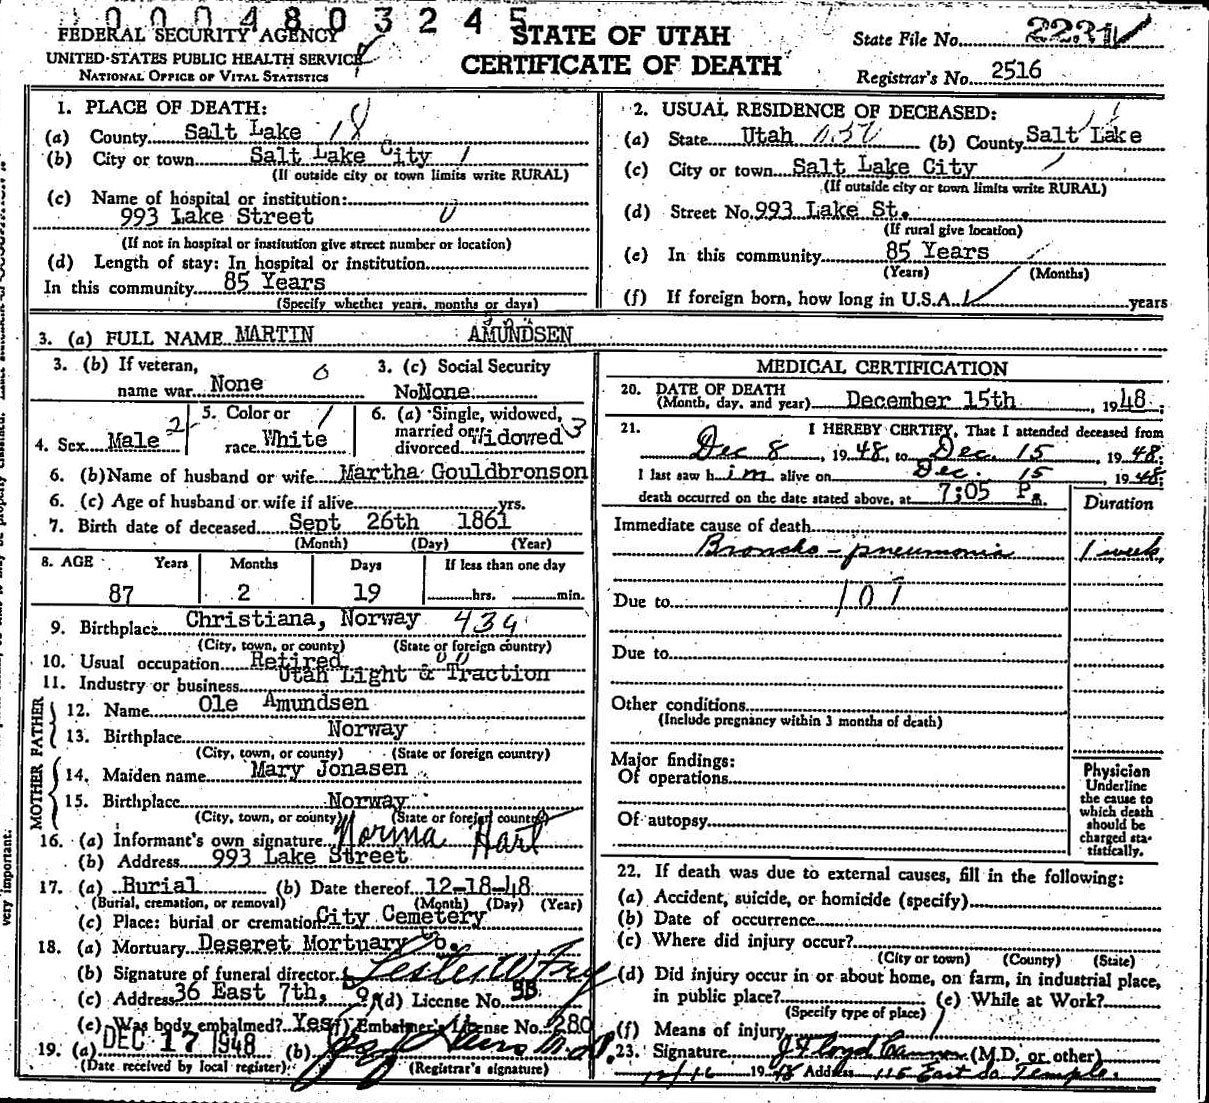 0004803245
FEDERAL SECURITY AGENCY
UNITED STATES PUBLIC HEALTH SERVICE
NATIONAL OFFICE OF VITAL STATISTICS
STATE OF UTAH
CERTIFICATE OF DEATH
State File No.
Registrar's No. 2516
1. PLACE OF DEATH:
(a) County Salt Lake 18
(b) City or town Salt Lake City 1
(If outside city or town limits write RURAL)
(c) Name of hospital or institution:
993 Lake Street 0
(If not in hospital or institution give street number or location)
(d) Length of stay: In hospital or institution
In this community 85 Years
(Specify whether years, months or days)
2. USUAL RESIDENCE OF DECEASED:
(a) State Utah (b) County Salt Lake
(c) City or town Salt Lake City
(If outside city or town limits write RURAL)
(d) Street No. 993 Lake St.
(If rural give location)
(e) In this community 85 Years
(Years) (Months)
(f) If foreign born, how long in U.S.A. years
3. (a) FULL NAME MARTIN AMUNDSEN
3. (b) If veteran, name war None 0
3. (c) Social Security No None
4. Sex Male 2
5. Color or race White 1
6. (a) Single, widowed, married or divorced Widowed 3
6. (b) Name of husband or wife Martha Gouldbronson
6. (c) Age of husband or wife if alive yrs.
7. Birth date of deceased Sept 26th 1861
(Month) (Day) (Year)
8. AGE Years Months Days If less than one day
87 2 19 hrs. min.
9. Birthplace Christiana, Norway 439
(City, town, or county) (State or foreign country)
10. Usual occupation Retired
11. Industry or business Utah Light & Traction
FATHER
12. Name Ole Amundsen
13. Birthplace Norway
(City, town, or county) (State or foreign country)
MOTHER
14. Maiden name Mary Jonasen
15. Birthplace Norway
(City, town, or county) (State or foreign country)
16. (a) Informant's own signature Norma Hart
(b) Address 993 Lake Street
17. (a) Burial (b) Date thereof 12-18-48
(Burial, cremation, or removal) (Month) (Day) (Year)
(c) Place: burial or cremation City Cemetery
18. (a) Mortuary Deseret Mortuary Co.
(b) Signature of funeral director
(c) Address 36 East 7th, (d) License No.
(e) Was body embalmed? Yes (f) Embalmer's License No. 280
19. (a) DEC 17 1948 (b)
(Date received by local register) (Registrar's signature)
MEDICAL CERTIFICATION
20. DATE OF DEATH
(Month, day, and year) December 15th, 1948:
21. I HEREBY CERTIFY, That I attended deceased from
Dec 8, 1948, to Dec. 15, 1948:
I last saw him alive on Dec. 15, 1948:
death occurred on the date stated above, at 7:05 P m.
Duration
Immediate cause of death
Broncho-pneumonia 1 week
Due to 107
Due to
Other conditions
(Include pregnancy within 3 months of death)
Major findings:
Of operations
Of autopsy
Physician
Underline
the cause to
which death
should be
charged sta-
tistically.
22. If death was due to external causes, fill in the following:
(a) Accident, suicide, or homicide (specify)
(b) Date of occurrence
(c) Where did injury occur?
(City or town) (County) (State)
(d) Did injury occur in or about home, on farm, in industrial place,
in public place? (e) While at Work?
(Specify type of place)
(f) Means of injury
23. Signature J Floyd Cannon (M.D. or other)
12/16 1948 Address 115 East So Temple.
very important.